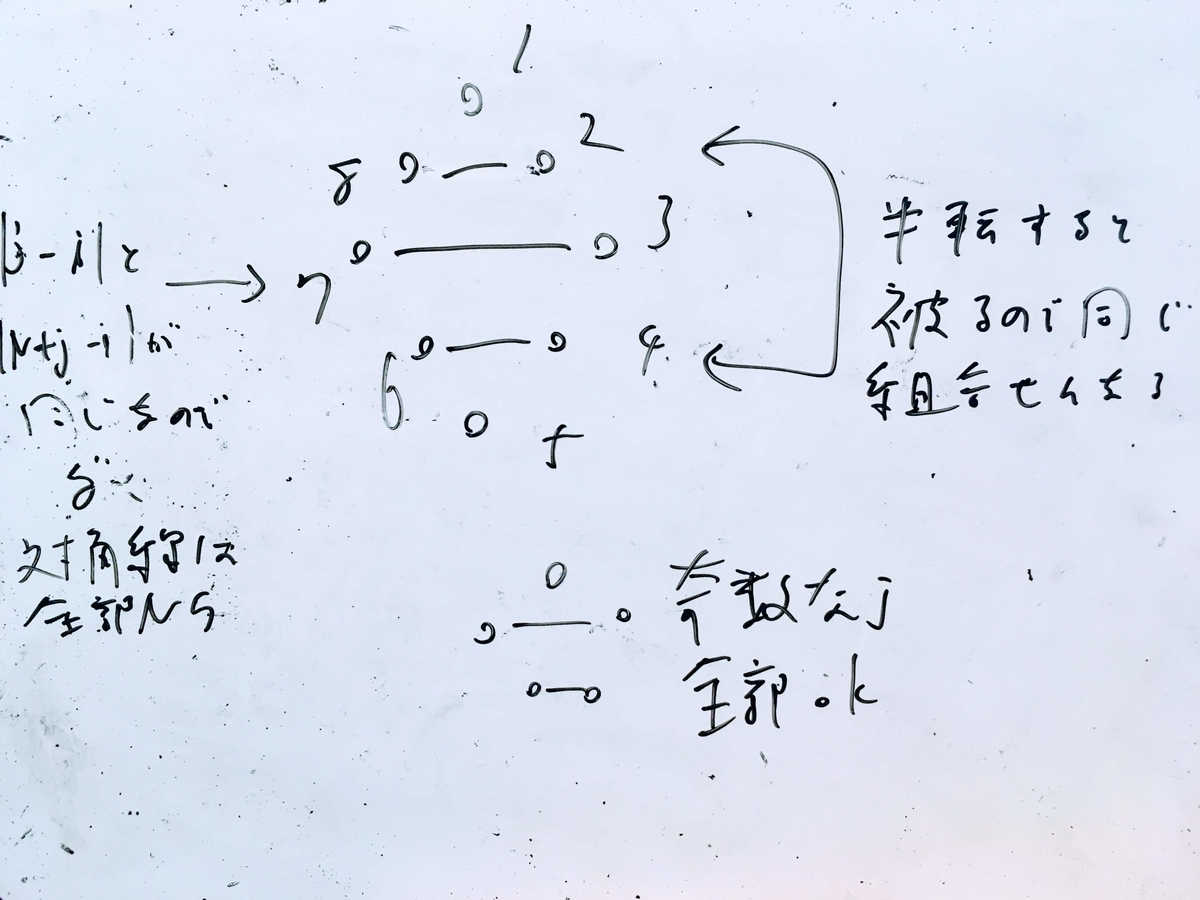 1
8 2
7 3
6 4
5
|j-i|と
|N+j-i|が
同じなので
ダメ
対角線は
全部NG
半転すると
被るので同じ
組合せんなる
奇数なj
全部ok